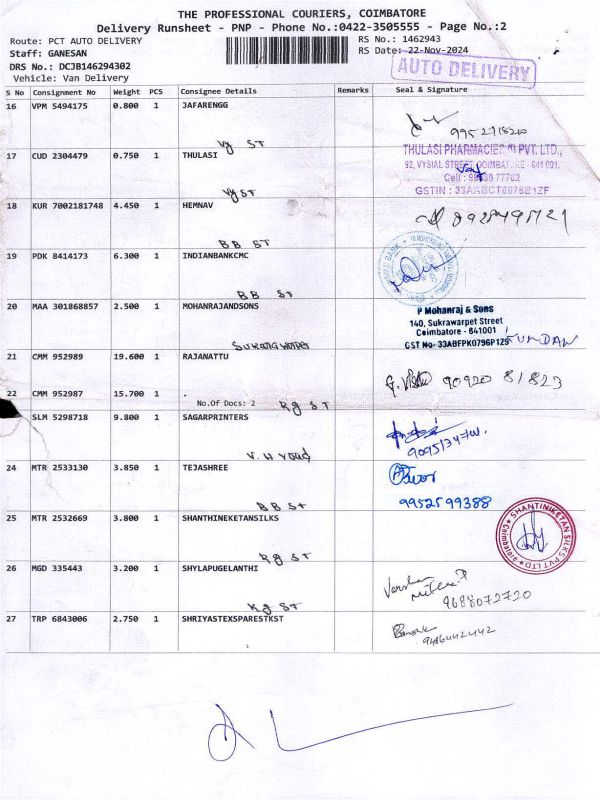 THE PROFESSIONAL COURIERS, COIMBATORE
Delivery Runsheet - PNP - Phone No.:0422-3505555 - Page No.:2
Route: PCT AUTO DELIVERY RS No.: 1462943
Staff: GANESAN RS Date: 22-Nov-2024
DRS No.: DCJB146294302
AUTO DELIVERY
Vehicle: Van Delivery
S No Consignment No Weight PCS Consignee Details Remarks Seal & Signature
16 VPM 5494175 0.800 1 JAFARENGG
Vy ST
17 CUD 2304479 0.750 1 THULASI
THULASI PHARMACIE PVT. LTD.,
92, VYSIAL STREET, COIMBATORE - 641 001.
Vy ST
GSTIN : 33AABCT6876B1ZF
18 KUR 7002181748 4.450 1 HEMNAV
BB ST
19 PDK 8414173 6.300 1 INDIANBANKCMC
BB St
20 MAA 301868857 2.500 1 MOHANRAJANDSONS
P Mohanraj & Sons
140, Sukrawarpet Street
Coimbatore - 641001
GST No- 33ABFPK0796P1Z9
21 CMM 952989 19.600 1 RAJANATTU
90920 81823
22 CMM 952987 15.700 1 .
No.Of Docs: 2 Rg ST
SLM 5298718 9.800 1 SAGARPRINTERS
24 MTR 2533130 3.850 1 TEJASHREE
BB St
9952599388
25 MTR 2532669 3.800 1 SHANTHINEKETANSILKS
SHANTINIKETAN SILKS PVT LTD
Coimbatore
Rg ST
26 MGD 335443 3.200 1 SHYLAPUGELANTHI
9688072720
Kg ST
27 TRP 6843006 2.750 1 SHRIYASTEXSPARESTKST
9486442442